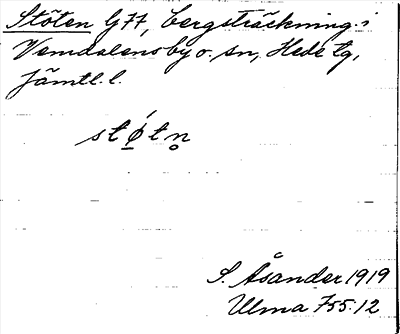 Stöten G77, bergsträckning i
Vemdalens by o. sn, Hede tg,
Jämtl. l.
stǿtn̥
S. Åsander 1919
Ulma 755:12